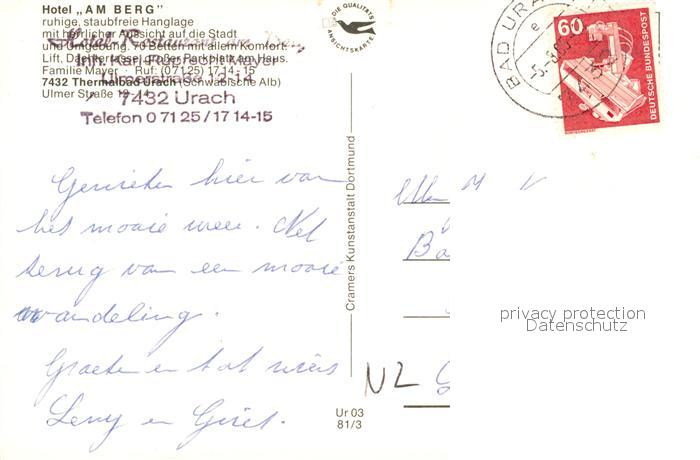 Hotel „AM BERG"
ruhige, staubfreie Hanglage
mit herrlicher Aussicht auf die Stadt
und Umgebung. 70 Betten mit allem Komfort.
Lift, Dachterrasse, Großer Parkplatz am Haus.
Familie Mayer · Ruf: (07125) 17 14-15
7432 Thermalbad Urach (Schwäbische Alb)
Ulmer Straße 12-14
Hotel Restaurant am Berg
Inh. Karl-Robert Mayer
Ulmerstraße 12-14
7432 Urach
Telefon 0 71 25/17 14-15
DIE QUALITÄTS
ANSICHTSKARTE
BAD URA
60
DEUTSCHE BUNDESPOST
Genieten hier van
het mooie weer. Net
terug van een mooie
wandeling.
Groeten en tot ziens
Leny en Giset.
Cramers Kunstanstalt Dortmund
Ur 03
81/3
NL
privacy protection
Datenschutz